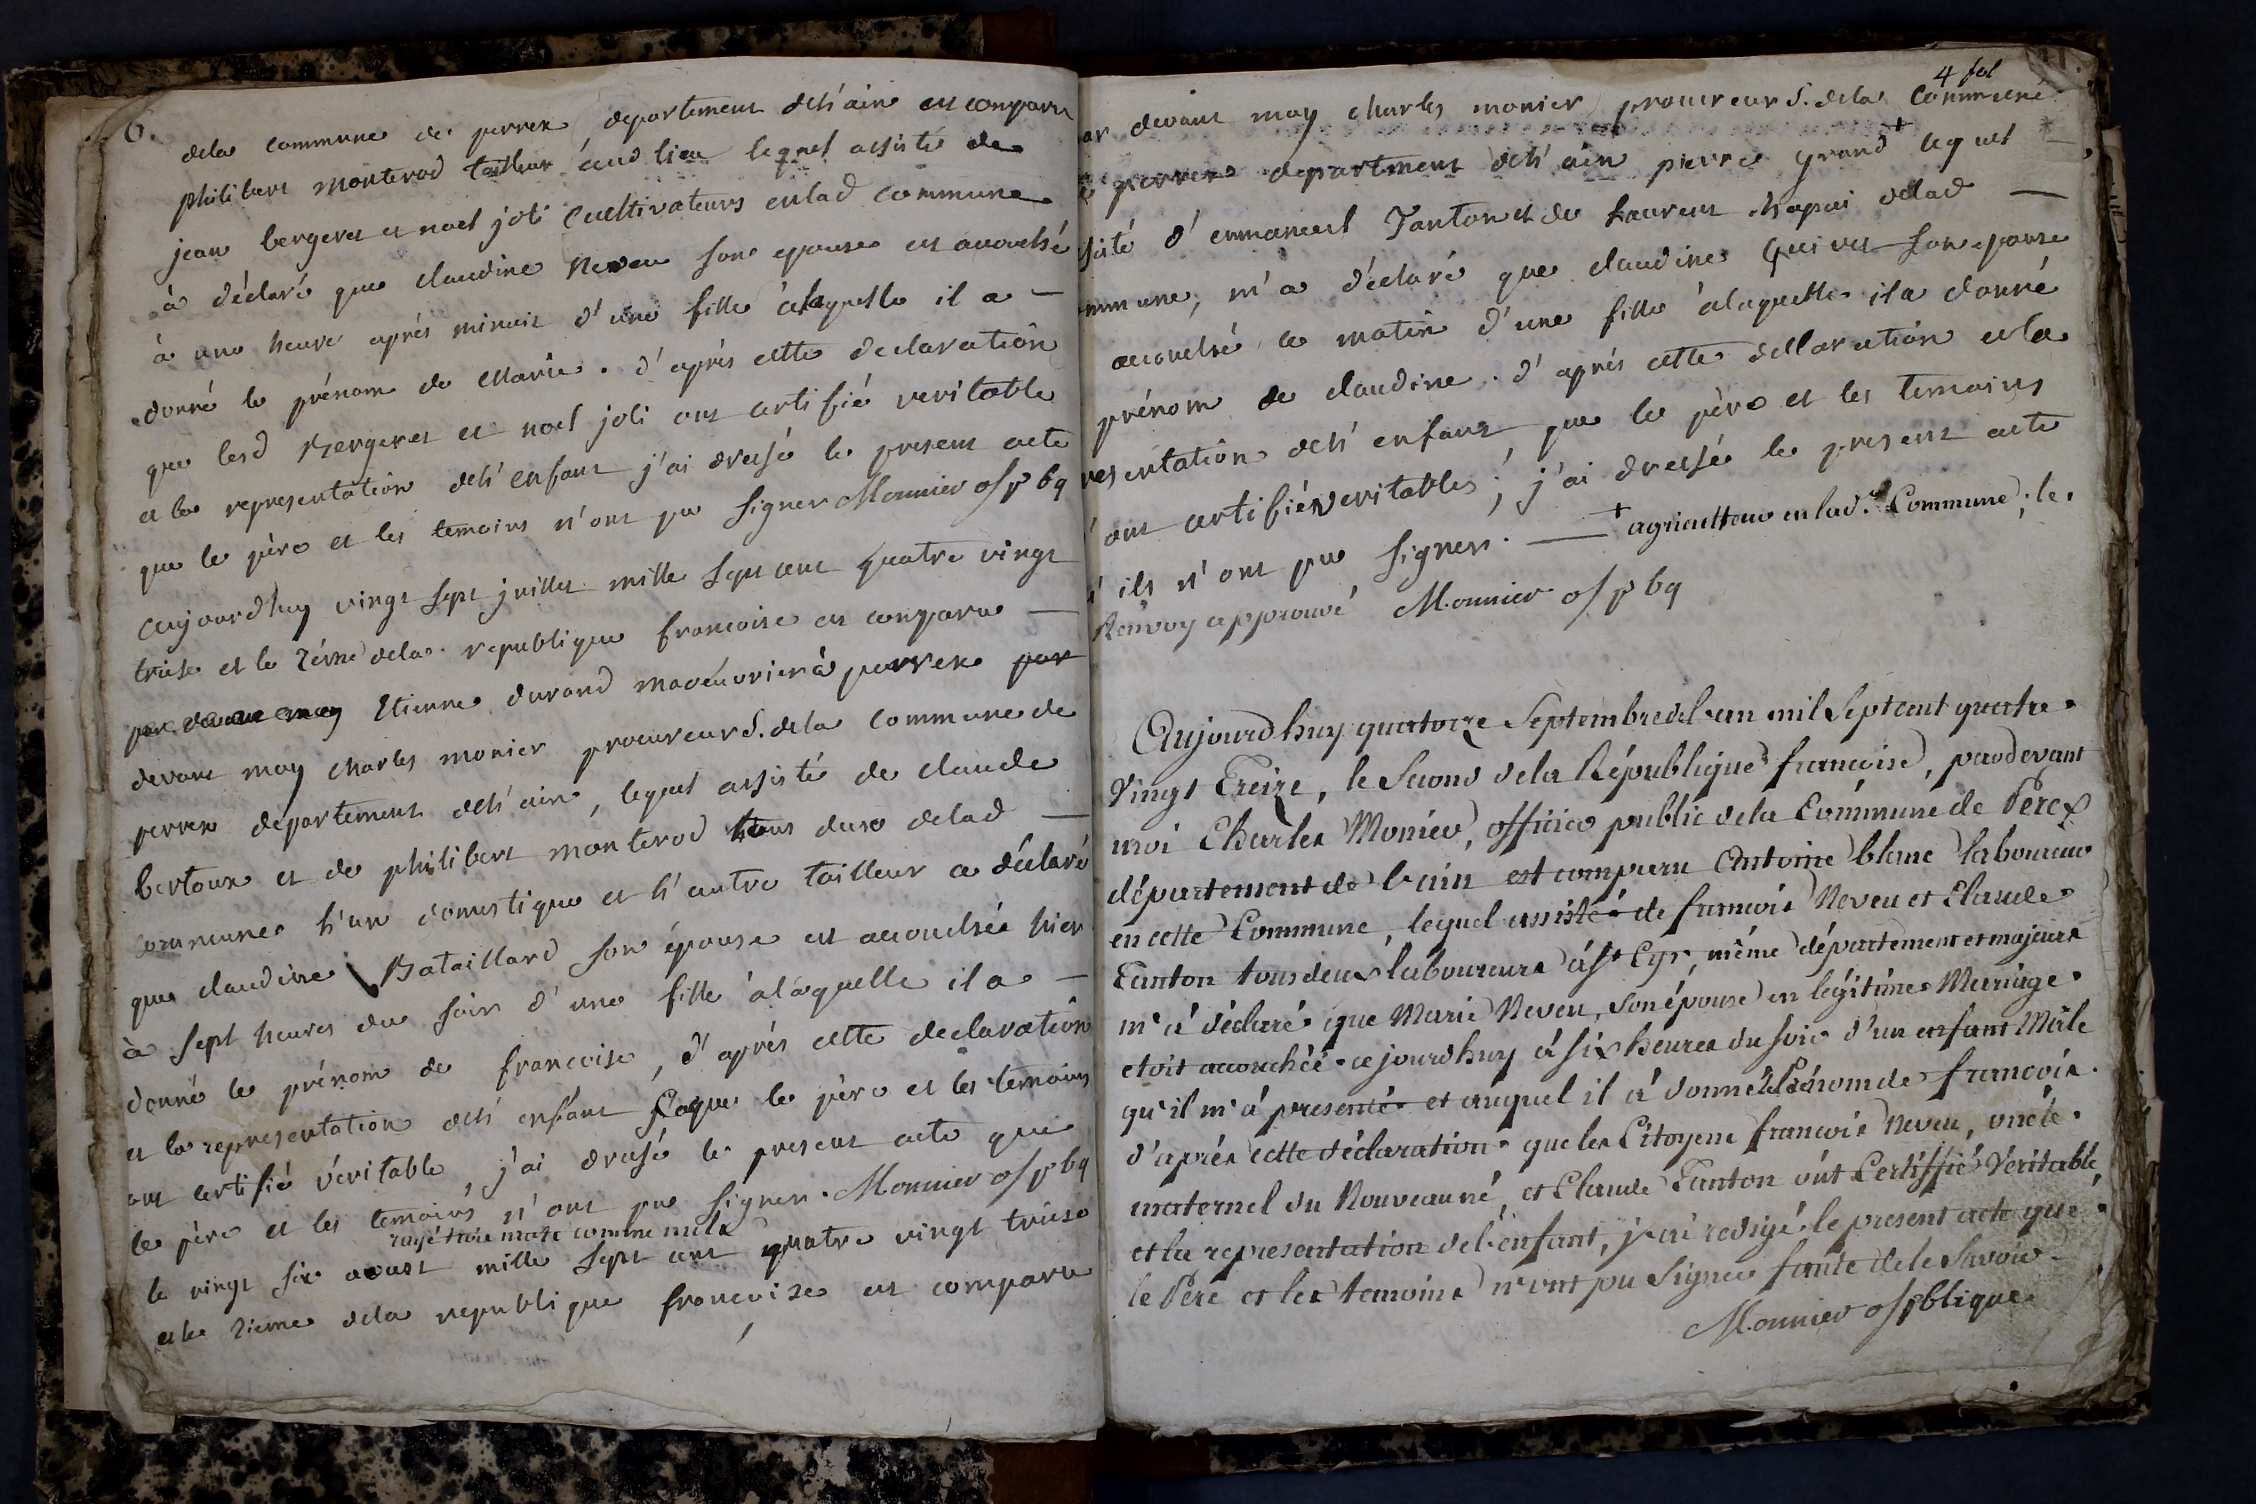 6.
dela commune de perrex, departement deh'ain est comparu
philibert monterod tailleur aud lieu lequel assisté de
jean bergeret et noel joli Cultivateurs enlad commune
à déclaré que claudine Neveu son epouse est accouché
à une heure aprés minuit d'une fille àlaquelle il a —
donné le prénom de Marie. d'aprés cette declaration
que lesd Bergeret et noel joli ont certifié veritable
et la representation deh' enfant j'ai dressé le present acte
que le pére et les temoins n'ont pu signer Monnier of pbq
Aujourdhuy vingt sept juillet mille sept cent quatre vingt
treise et le 2éme dela republique francoise est comparu —
par devant moy Etienne durand maneuvrier à perrex par
devant moy charles monier procureur S. dela commune de
perrex departement deh' ain, lequel assisté de claude
bertoux et de philibert monterod tous deux delad —
commune h'un domestique et h'autre tailleur a déclaré
que claudine Bataillard son épouse est accouchée hier
à sept heures du soir d'une fille àlaquelle il a —
donné le prénom de francoise, d'aprés cette declaration
et la representation deh' enfant que le pére et les temoins
ont certifié véritable, j'ai dressé le present acte que
le pére et les temoins n'ont pu signer. Monnier of pbq
rayé trois mots comme nuls
le vingt six aoust mille sept cent quatre vingt treise
et le 2ieme dela republique francoise est comparu
4 fol
par devant moy charles monier procureur S. dela Commune
de perrex departement deh' ain pierre grand + lequel —
assisté d'emmanuel Tanton et de Laurent chapui delad —
commune, m'a déclaré que claudine Guivet son epouse
accouché ce matin d'une fille àlaquelle il a donné
prénom de claudine. d'aprés cette declaration et la
representation deh' enfant, que le pére et les temoins
ont certifiés veritables; j'ai dressé le present acte
qu' ils n'ont pu signer. — + agriculteur en lad.e Commune; le.
Renvoy approuvé Monnier of pbq
Aujourdhuy quatorze Septembre del'an mil Septcent quatre
Vingt Treize, le Second dela République francoise, pardevant
moi Charles Monier, officier public dela Commune de Perex
département de l'ain est comparu Antoine blanc laboureur
en cette Commune, lequel assisté de francois Neveu et Claude
Tanton tous deux laboureurs à St Cyr, même département et majeurs
m'à déclaré que Marie Neveu, son épouse en légitime Mariage
etoit accouchée cejourdhuy à six heures du soir d'un enfant Mâle
qu'il m'à presenté et auquel il à donné le Prénom de francois.
d'aprés cette déclaration que les Citoyens francois Neveu, oncle
maternel du Nouveau né, et Claude Tanton ont Certiffié Veritable
et la representation del'enfant, j'ai redigé le present acte que
le Pere et les temoins n'ont pu Signer faute de le Savoir
Monnier of pblique